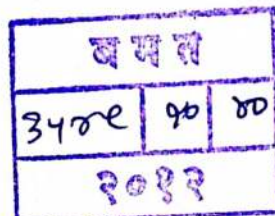 बमत
३५४९ १० ४०
२०१२